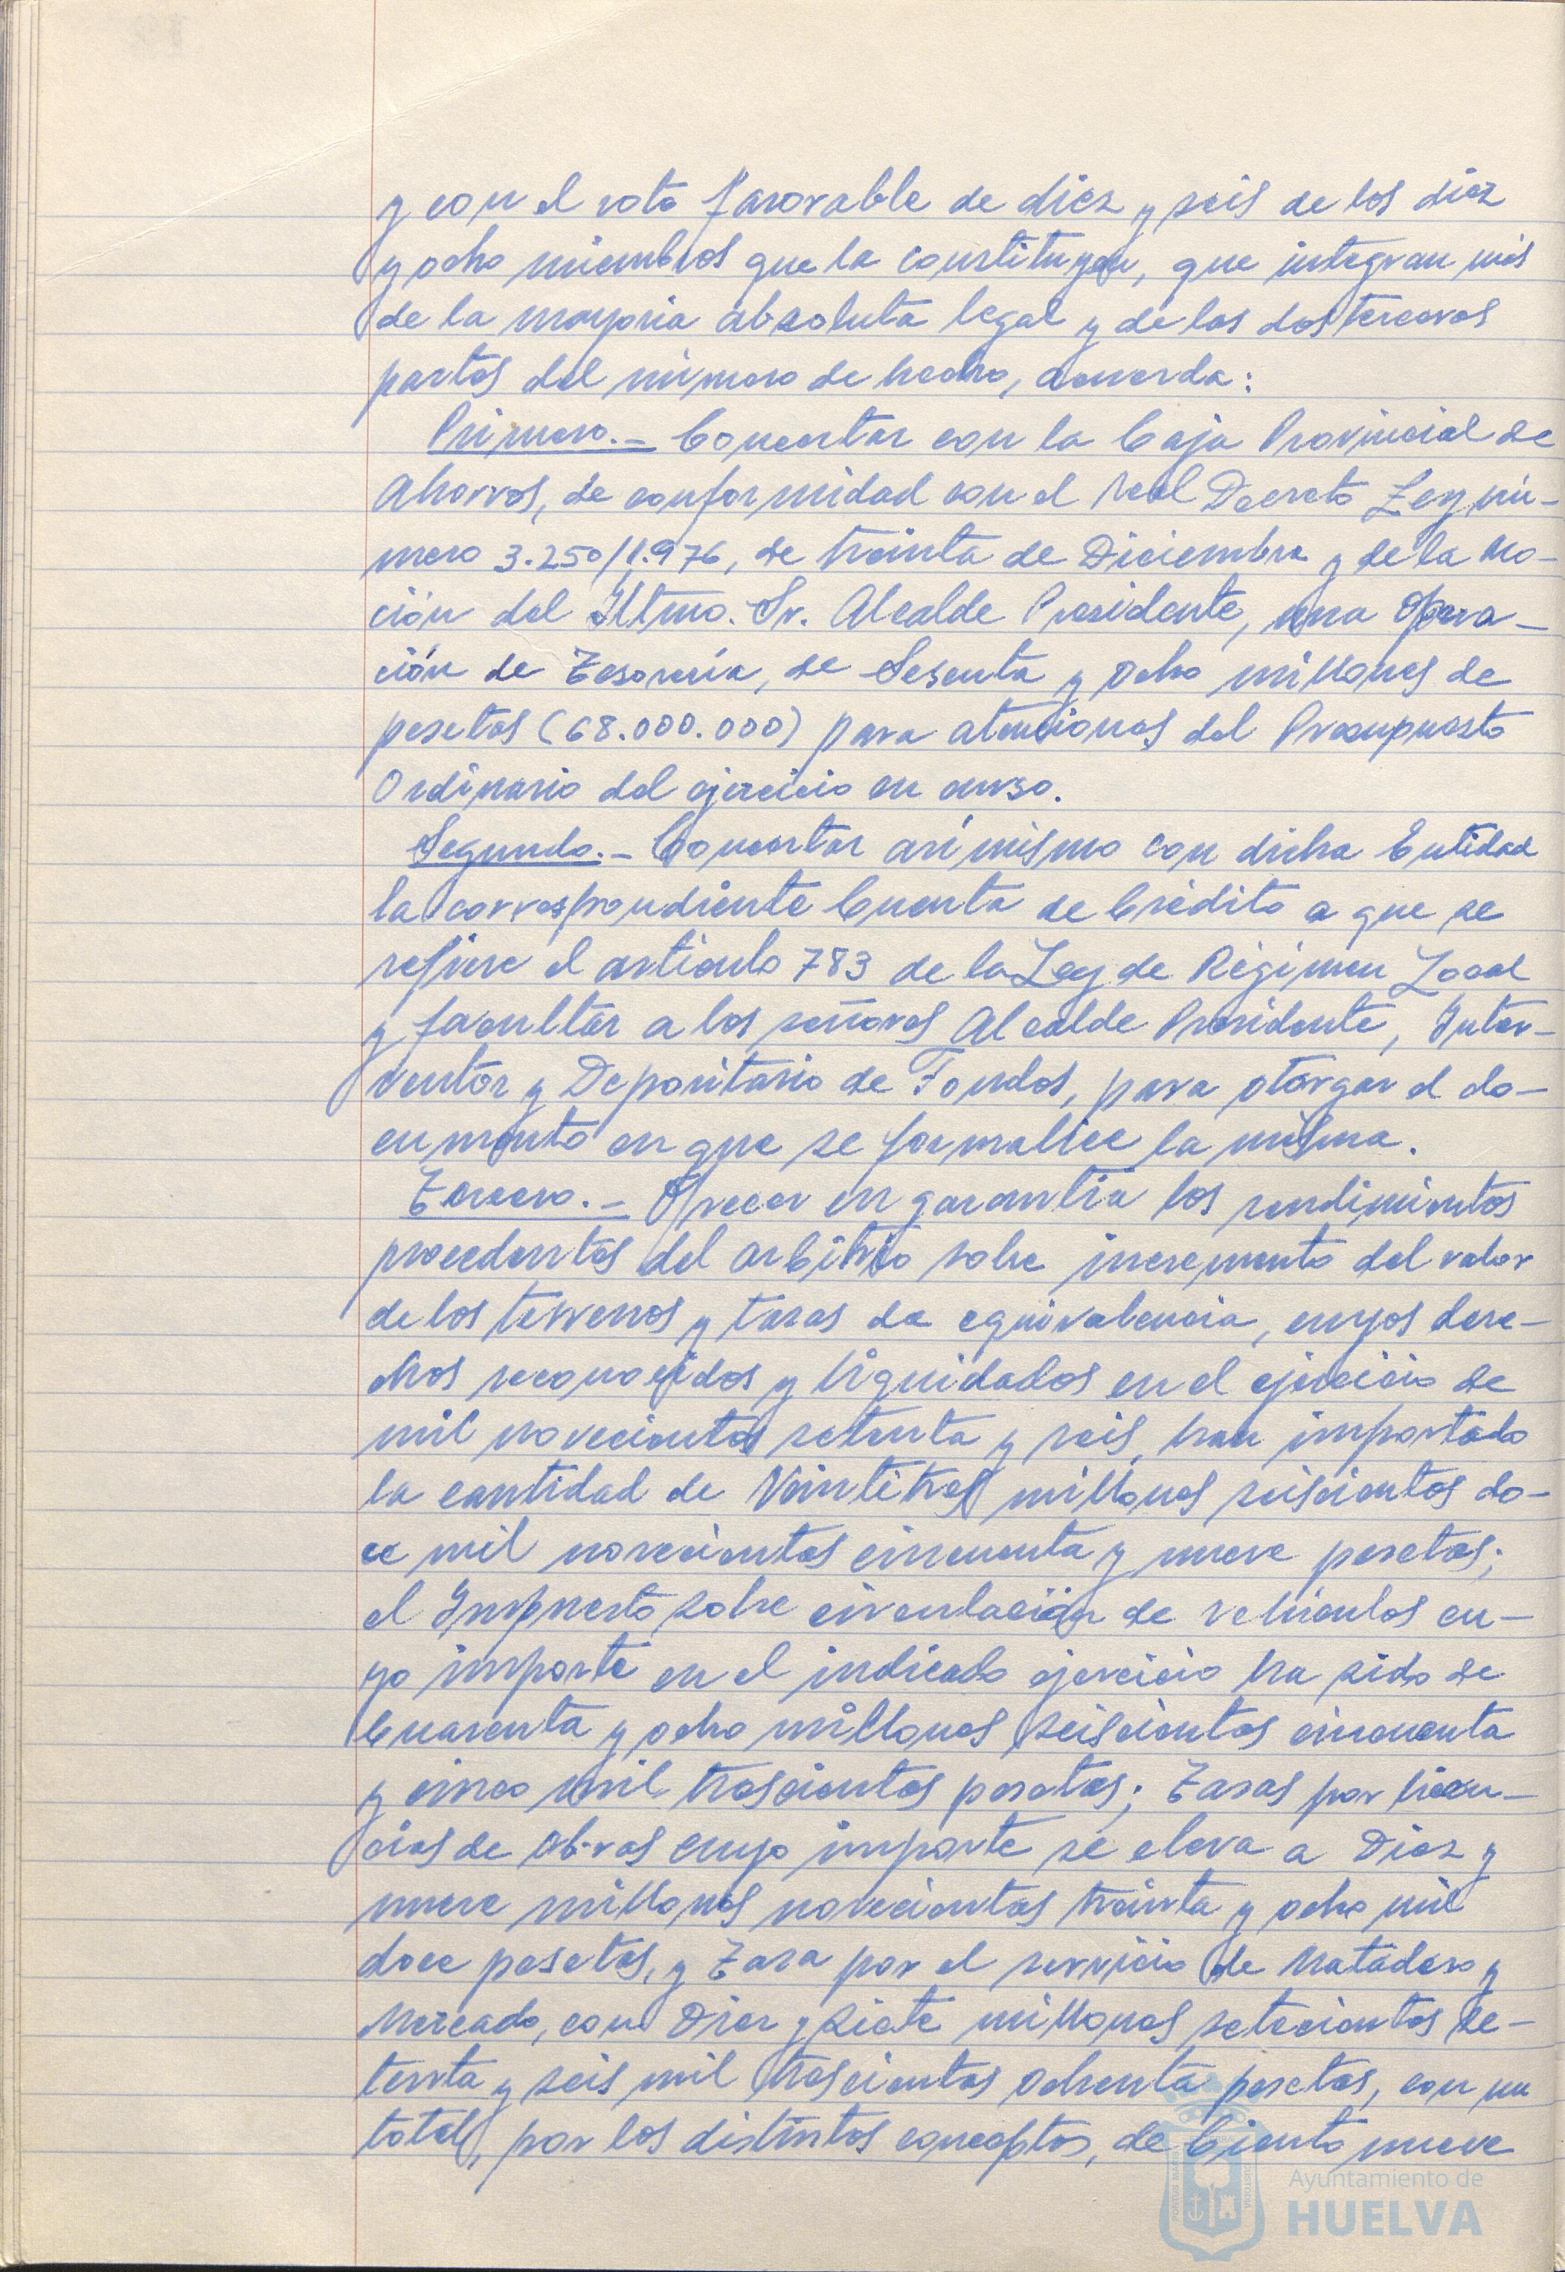 y con el voto favorable de diez y seis de los diez
y ocho miembros que la constituyen, que integran más
de la mayoría absoluta legal y de las dos terceras
partes del número de hecho, acuerda:
Primero.- Concertar con la Caja Provincial de
Ahorros, de conformidad con el Real Decreto Ley nú-
mero 3.250/1.976, de treinta de Diciembre y de la Mo-
ción del Iltmo. Sr. Alcalde Presidente, una Opera-
ción de Tesorería, de Sesenta y ocho millones de
pesetas (68.000.000) para atenciones del Presupuesto
Ordinario del ejercicio en curso.
Segundo.- Concertar asímismo con dicha Entidad
la correspondiente Cuenta de Crédito a que se
refiere el artículo 783 de la Ley de Régimen Local
y facultar a los señores Alcalde Presidente, Inter-
ventor y Depositario de Fondos, para otorgar el do-
cumento en que se formalice la misma.
Tercero.- Ofrecer en garantía los rendimientos
procedentes del arbitrio sobre incremento del valor
de los terrenos y tasas de equivalencia, cuyos dere-
chos reconocidos y liquidados en el ejercicio de
mil novecientos setenta y seis, han importado
la cantidad de Veintitres millones seiscientos do-
ce mil novecientos cincuenta y nueve pesetas;
el Impuesto sobre circulación de vehículos cu-
yo importe en el indicado ejercicio ha sido de
Cuarenta y ocho millones seiscientos cincuenta
y cinco mil trescientos pesetas; Tasas por licen-
cias de Obras cuyo importe se eleva a Diez y
nueve millones novecientos treinta y ocho mil
doce pesetas, y Tasa por el servicio de Matadero y
Mercado, con Diez y siete millones setecientos se-
tenta y seis mil trescientas ochenta pesetas, con un
total, por los distintos conceptos, de Ciento nueve
Ayuntamiento de
HUELVA